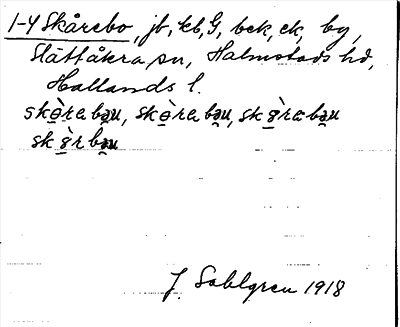 1-4 Skårebo, jb, kb, G, bek, ek, by,
Slättåkra sn, Halmstads hd,
Hallands l.
skɵ̀rabəu, skɵ̀rabəu, skɵ̀rabəu
skɵ̀rbəu
J. Sahlgren 1918